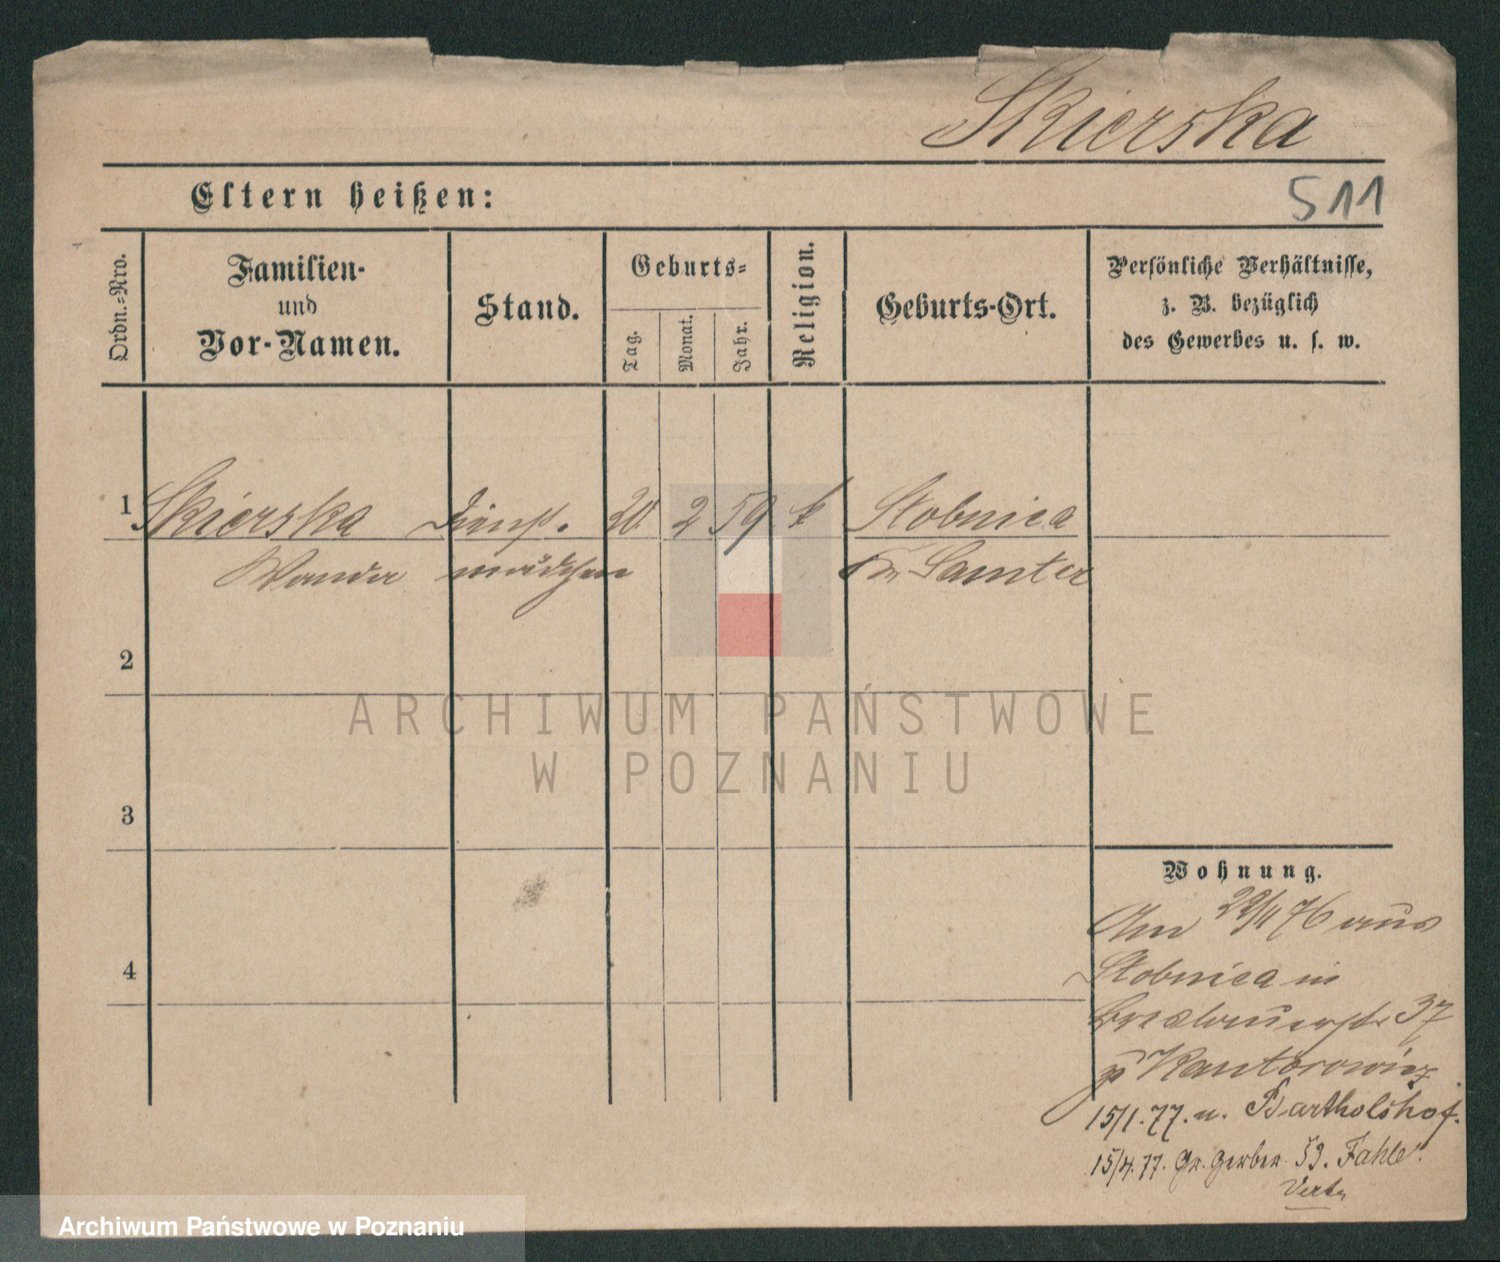 Skierska
Eltern heißen:
511
Ordn.-Nro.
Familien-
und
Vor-Namen.
Stand.
Geburts-
Tag.
Monat.
Jahr.
Religion.
Geburts-Ort.
Persönliche Verhältnisse,
z. B. bezüglich
des Gewerbes u. s. w.
1 Skierska Dienst. 20. 2 59 k Stobnica
Wanda mädchen Kr Samter
2
3
4
Wohnung.
Am 29/11 76 aus
Stobnica in
Breslauerstr 37
Kantorowicz
15/1.77. n. Bartholdshof.
15/4.77. Gr. Gerber. Fahle.
ARCHIWUM PAŃSTWOWE
W POZNANIU
Archiwum Państwowe w Poznaniu